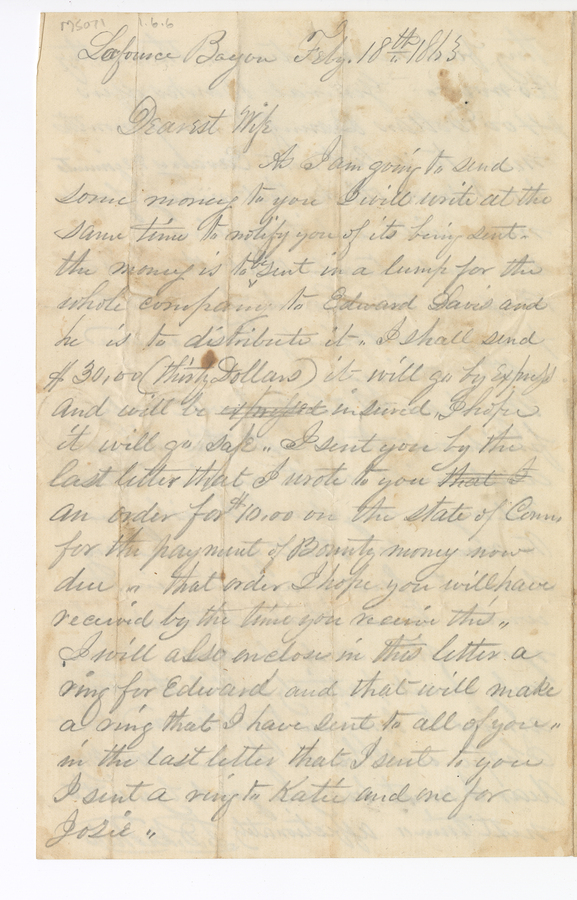 MS071 1.6.6
Lafource Bayou Feby. 18th 1863
Dearest Wife
As I am going to send
some money to you I will write at the
same time to notify you of its being sent.
the money is to be sent in a lump for the
whole company to Edward Davis and
he is to distribute it " I shall send
$30,00 (thirty Dollars) it will go by express
and will be expressed insured, I hope
it will go safe " I sent you by the
last letter that I wrote to you that I
an order for $10,00 on the state of Conn,
for the payment of Bounty money now
due " that order I hope you will have
received by the time you receive this "
I will also enclose in this letter a
ring for Edward and that will make
a ring that I have sent to all of you "
in the last letter that I sent to you
I sent a ring to Katie and one for
Josie "